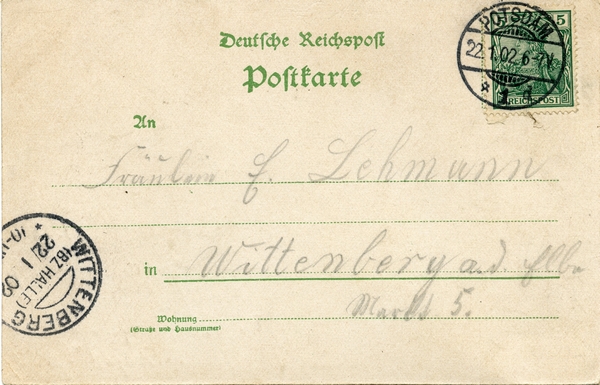 Deutsche Reichspost
Postkarte
POTSDAM
22.1.02.6-7N.
* 1 d.
5
REICHSPOST
An
Fräulein E. Lehmann
in Wittenberg a.d. Elbe
Markt 5.
Wohnung
(Straße und Hausnummer)
WITTENBERG
(BZ HALLE)
22 1 02
*